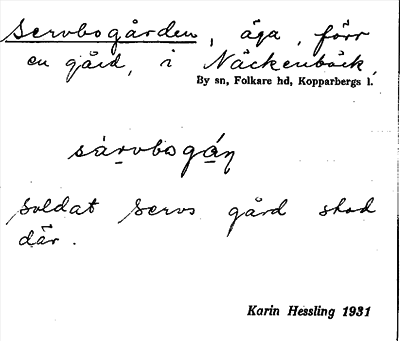 Servbogården, äga, förr
en gård, i Näckenbäck,
By sn, Folkare hd, Kopparbergs l.
särvbogán
Soldat Servs gård stod
där.
Karin Hessling 1931